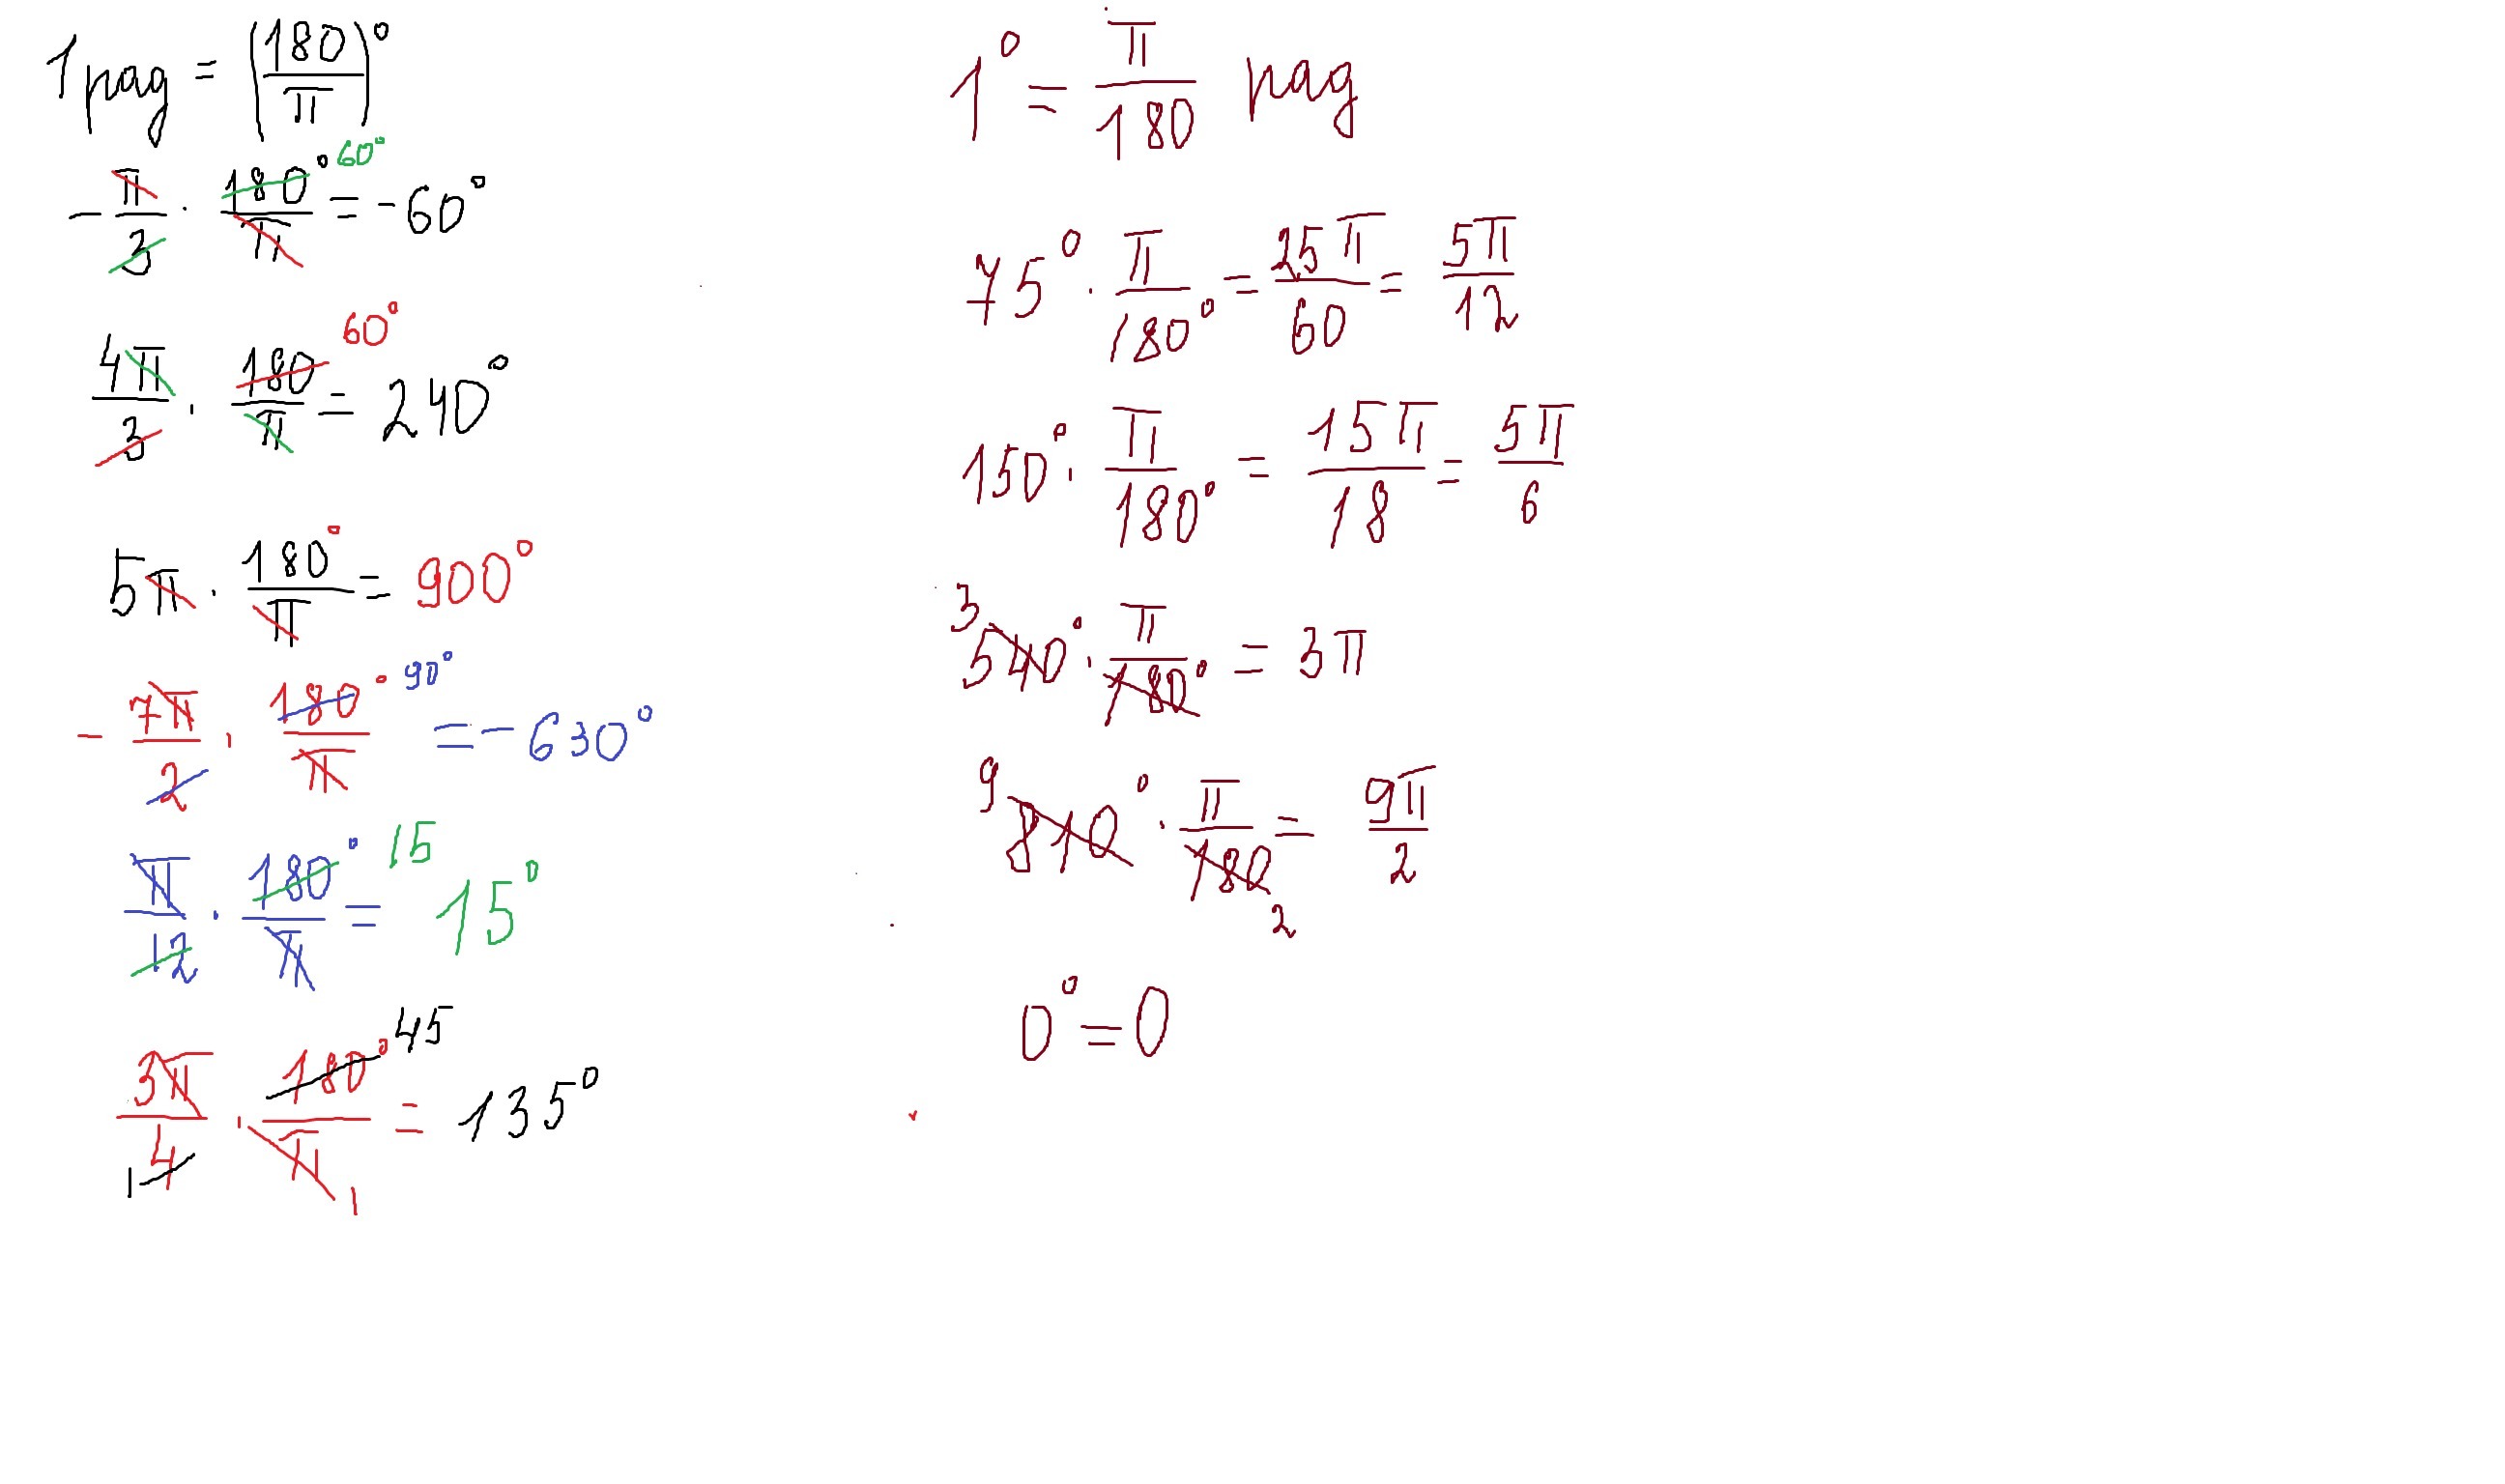 1 рад = (180/π)°
-π/3 · 180°/π = -60°
60°
4π/3 · 180/π = 240°
60°
5π · 180°/π = 900°
-7π/2 · 180°/π = -630°
90°
π/12 · 180°/π = 15°
15
3π/4 · 180°/π = 135°
45
1
1
1° = π/180 рад
75° · π/180° = 25π/60 = 5π/12
150° · π/180° = 15π/18 = 5π/6
3
540° · π/180° = 3π
9
810° · π/180 = 9π/2
2
0° = 0